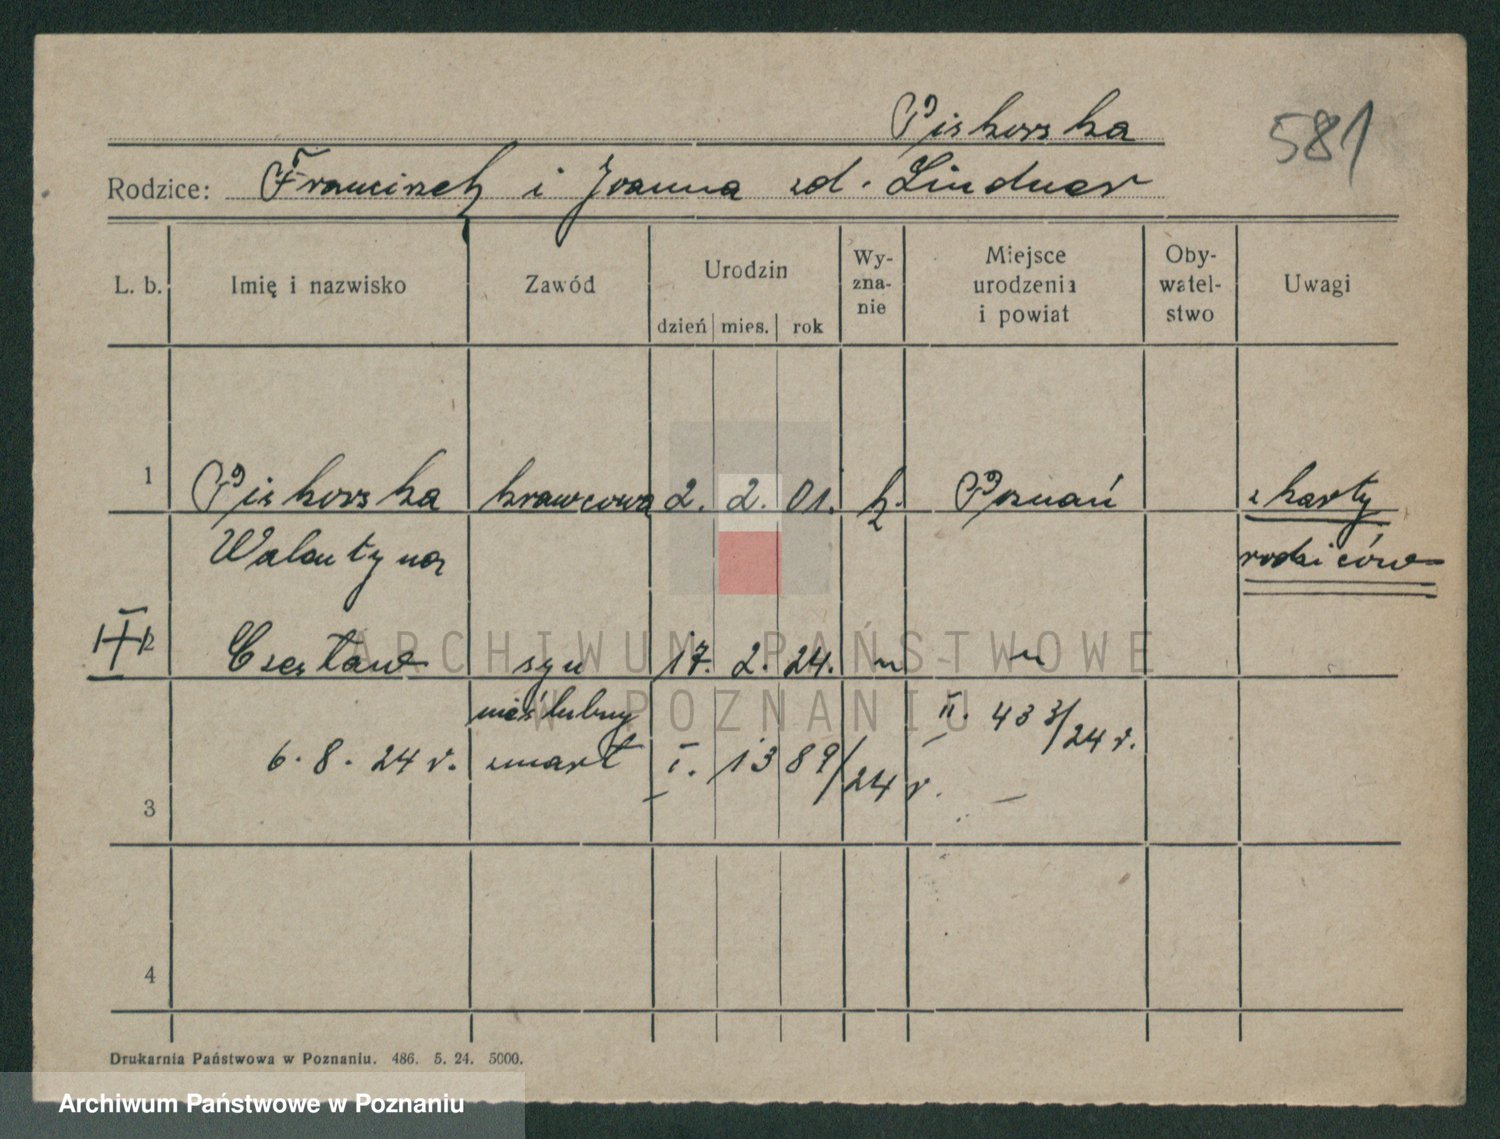 Piskorska
581
Rodzice: Franciszek i Joanna zd. Lindner
L. b. Imię i nazwisko Zawód Urodzin dzień mies. rok Wy-zna-nie Miejsce urodzenia i powiat Oby-watel-stwo Uwagi
1 Piskorska krawcowa 2. 2. 01. k. Poznań z karty
Walentyna rodziców
2 Czesław syn 17. 2. 24. " "
nieślubny II. 433/24 r.
6. 8. 24 r. zmarł I. 1389/24 r.
3
4
Drukarnia Państwowa w Poznaniu. 486. 5. 24. 5000.
ARCHIWUM PAŃSTWOWE
W POZNANIU
Archiwum Państwowe w Poznaniu